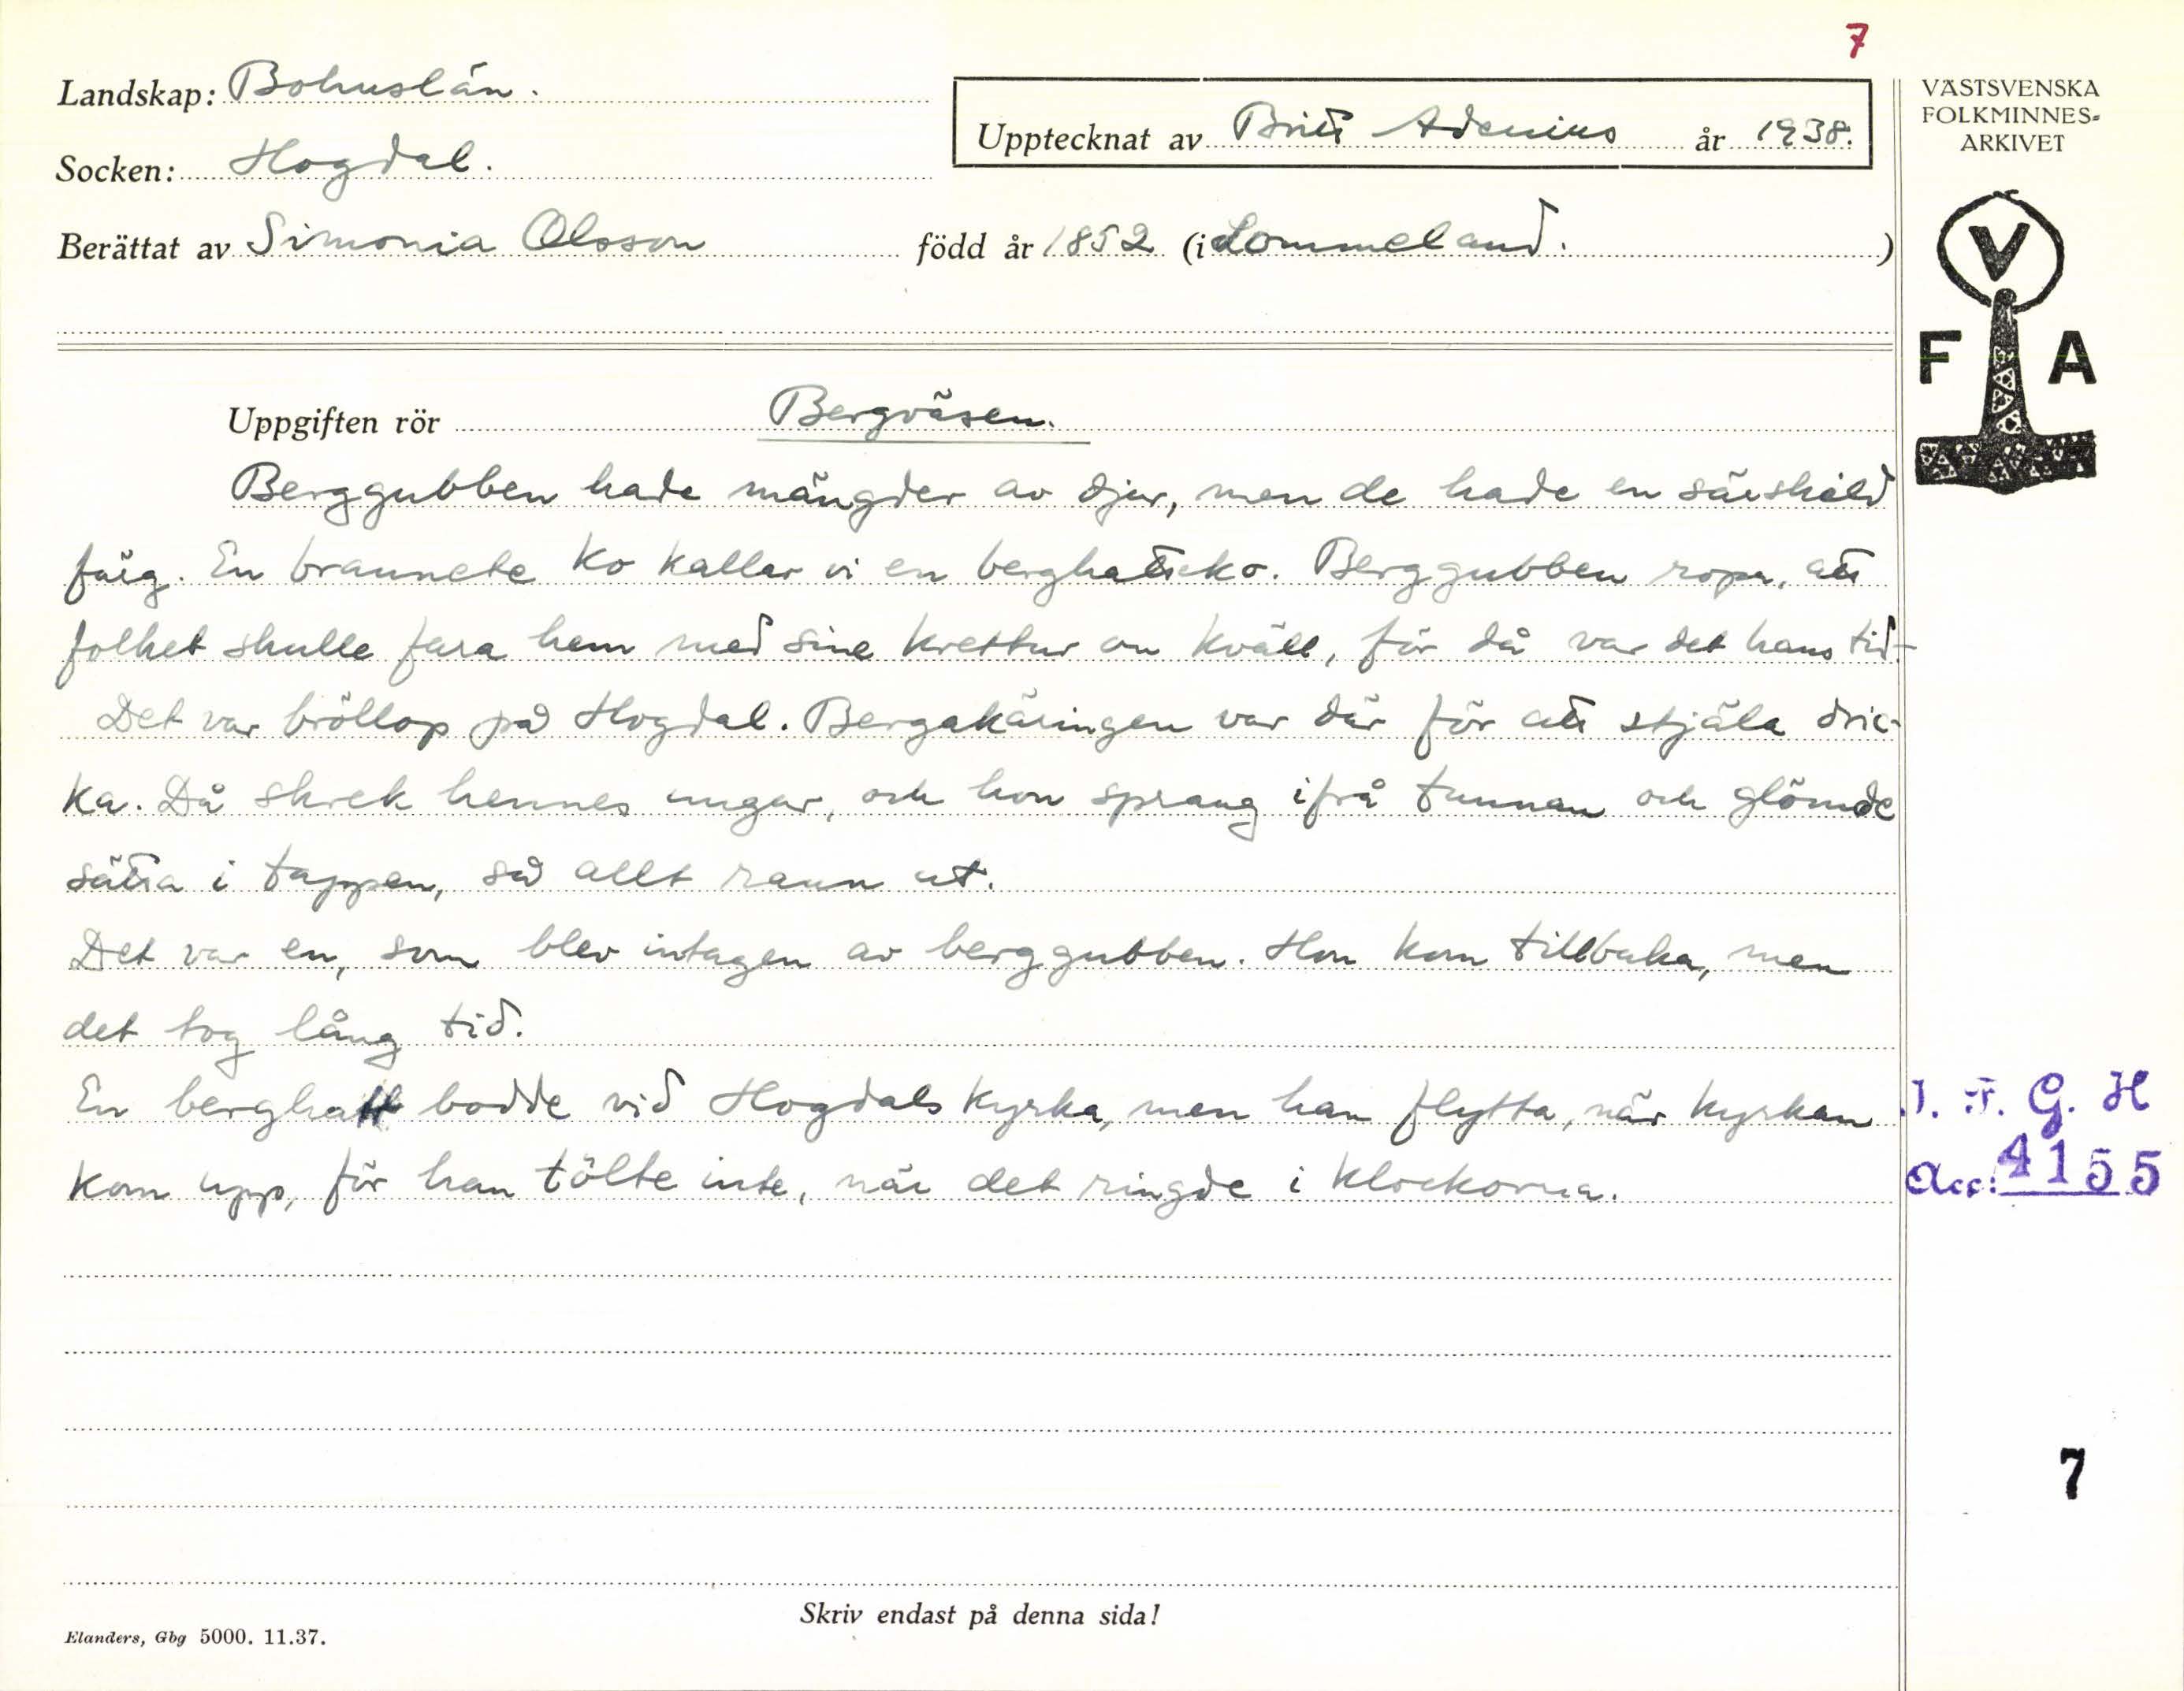 7
Landskap: Bohuslän.
Upptecknat av Britt Adenius år 1938.
Socken: Hogdal.
Berättat av Simonia Olsson född år 1852 (i Lommeland.)
VÄSTSVENSKA
FOLKMINNES=
ARKIVET
V
F A
Uppgiften rör Bergväsen.
Berggubben hade mängder av djur, men de hade en särskild
färg. En brannete ko kallar vi en berghatteko. Berggubben ropa, att
folket skulle fara hem med sine krettur om kväll, för då var det hans tid.
Det var bröllop på Hogdal. Bergakäringen var där för att stjäla dric-
ka. Då skrek hennes ungar, och hon sprang ifrå tunnan och glömde
sätta i tappen, så allt rann ut.
Det var en, som blev intagen av berggubben. Hon kom tillbaka, men
det tog lång tid.
En berghatt bodde vid Hogdals kyrka, men han flytta, när kyrkan
kom upp, för han tölte inte, när det ringde i klockorna.
I. F. G. H
Acc: 4155
7
Skriv endast på denna sida!
Elanders, Gbg 5000. 11.37.